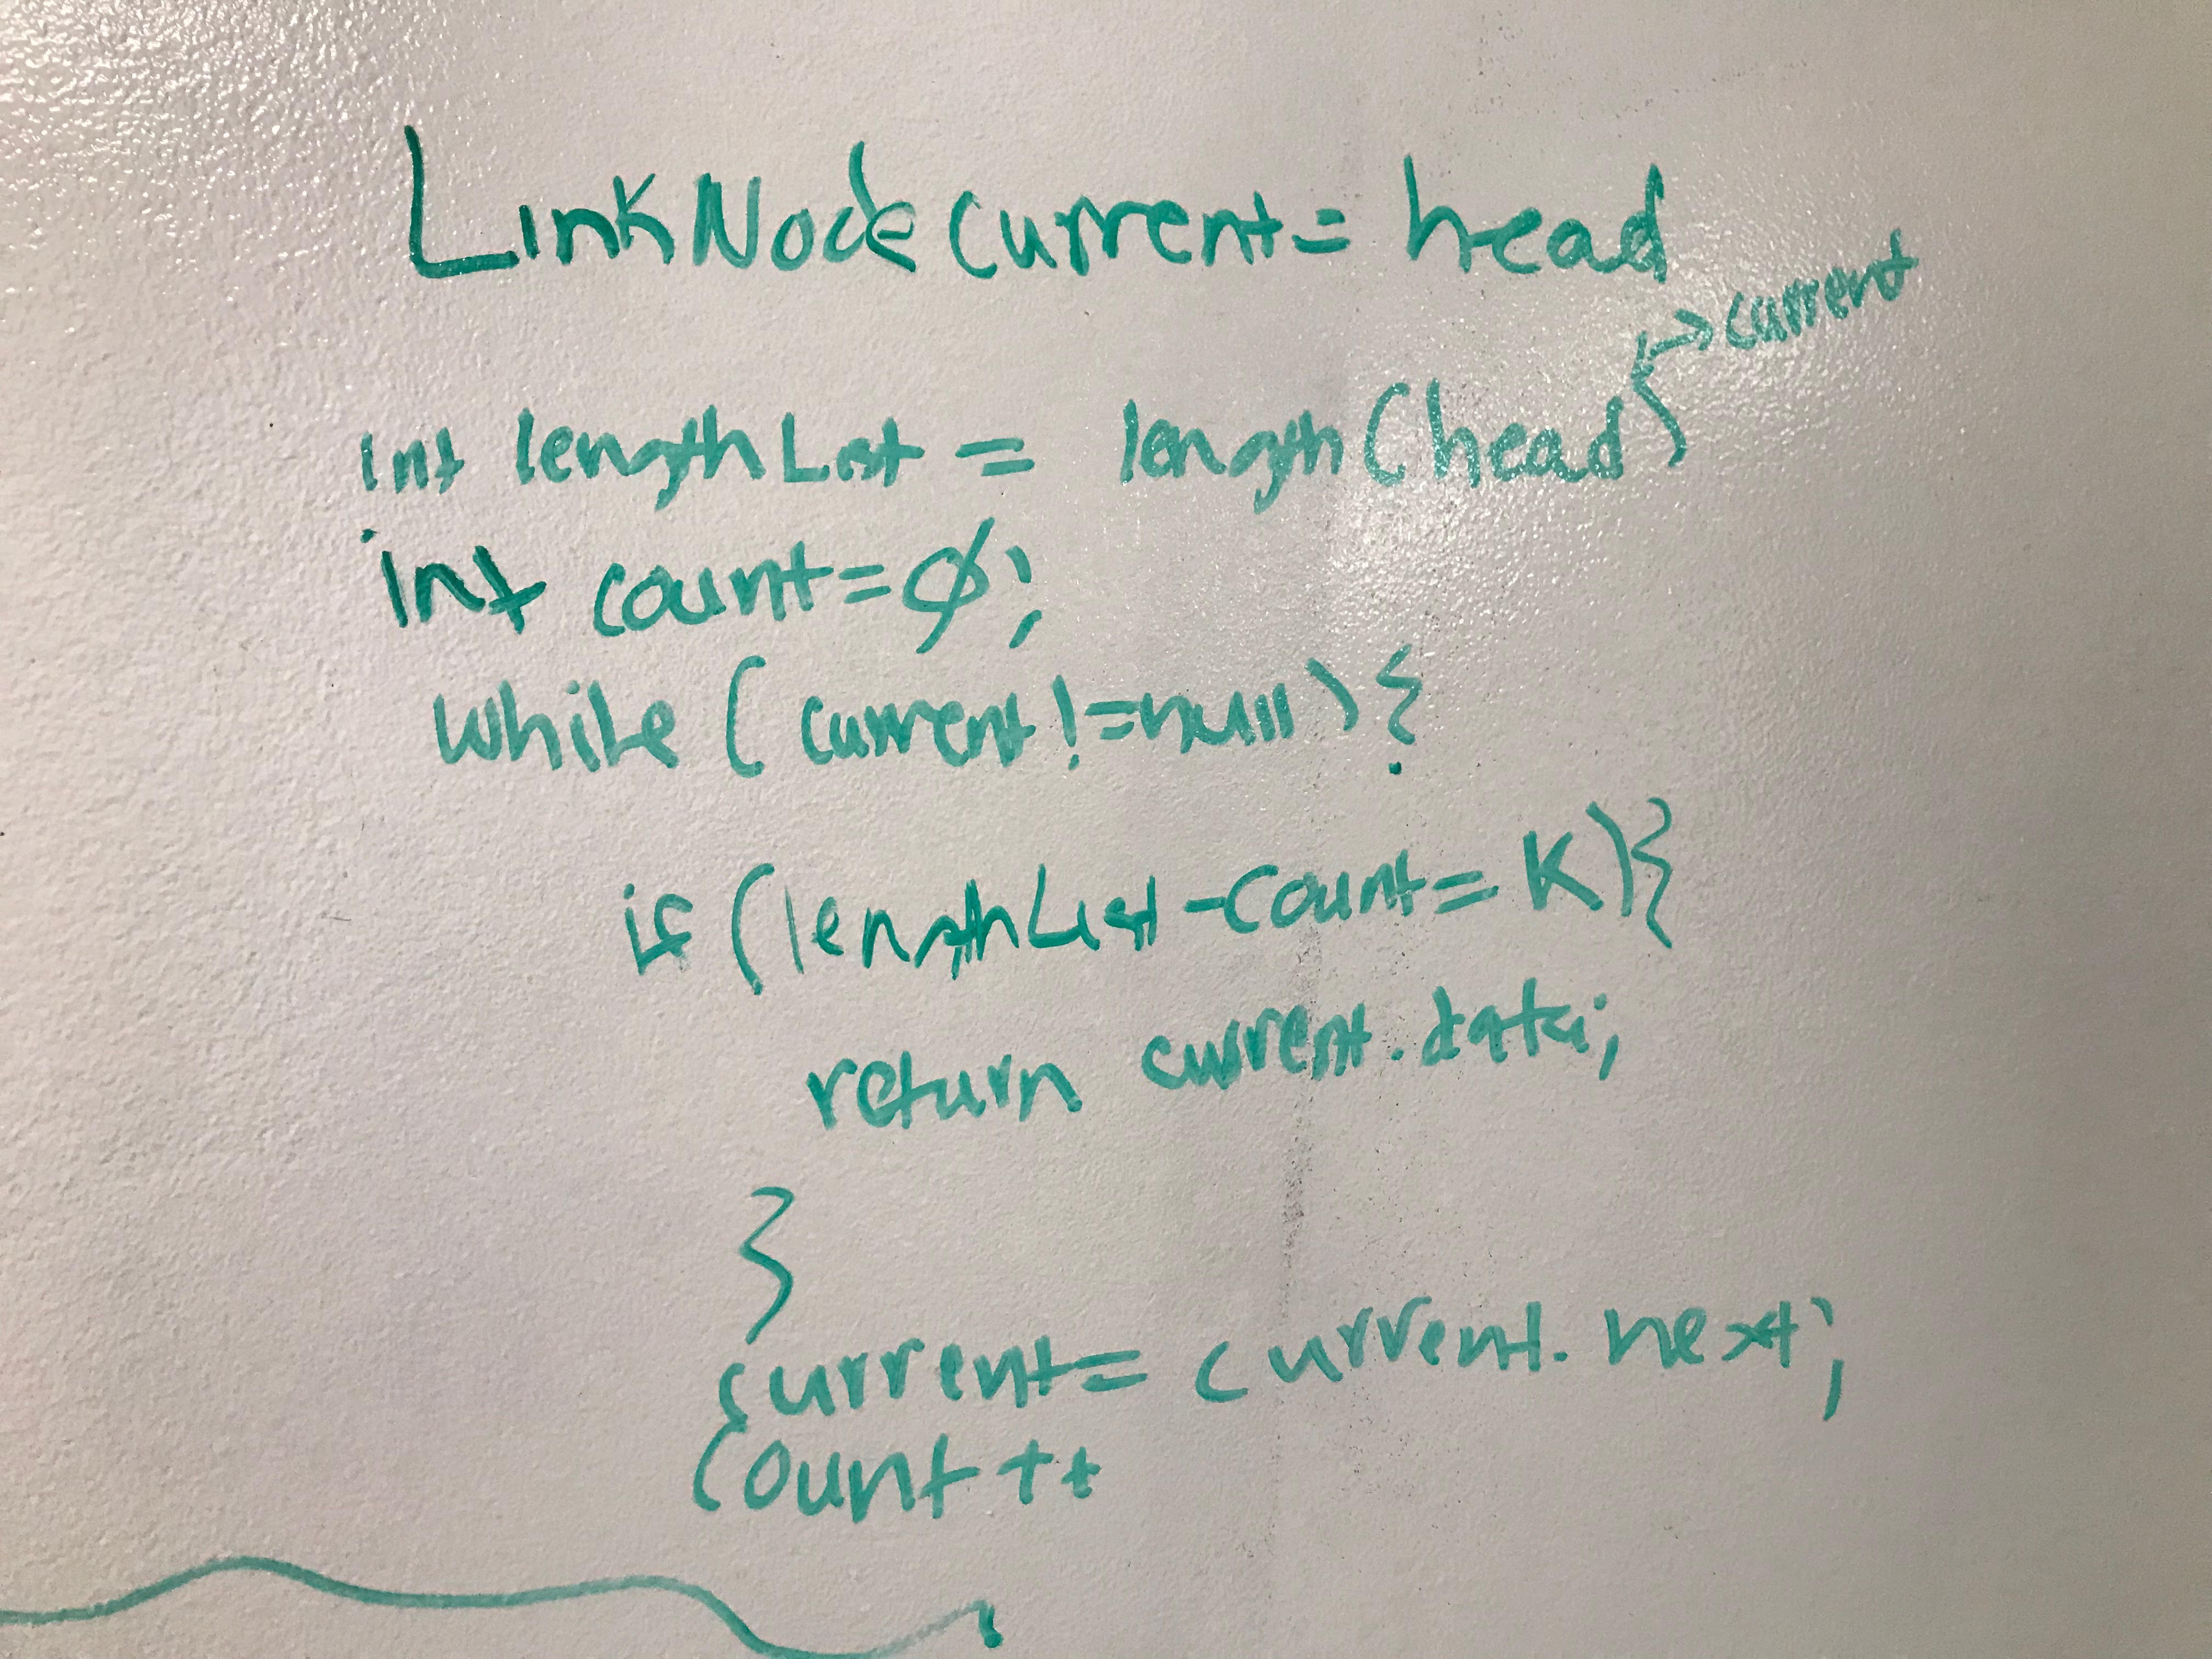 LinkNode current = head
→ current
int lengthList = length(head)
int count=0;
while (current!=null){
if (lengthList-count= K){
return current.data;
}
current= current.next;
Count ++